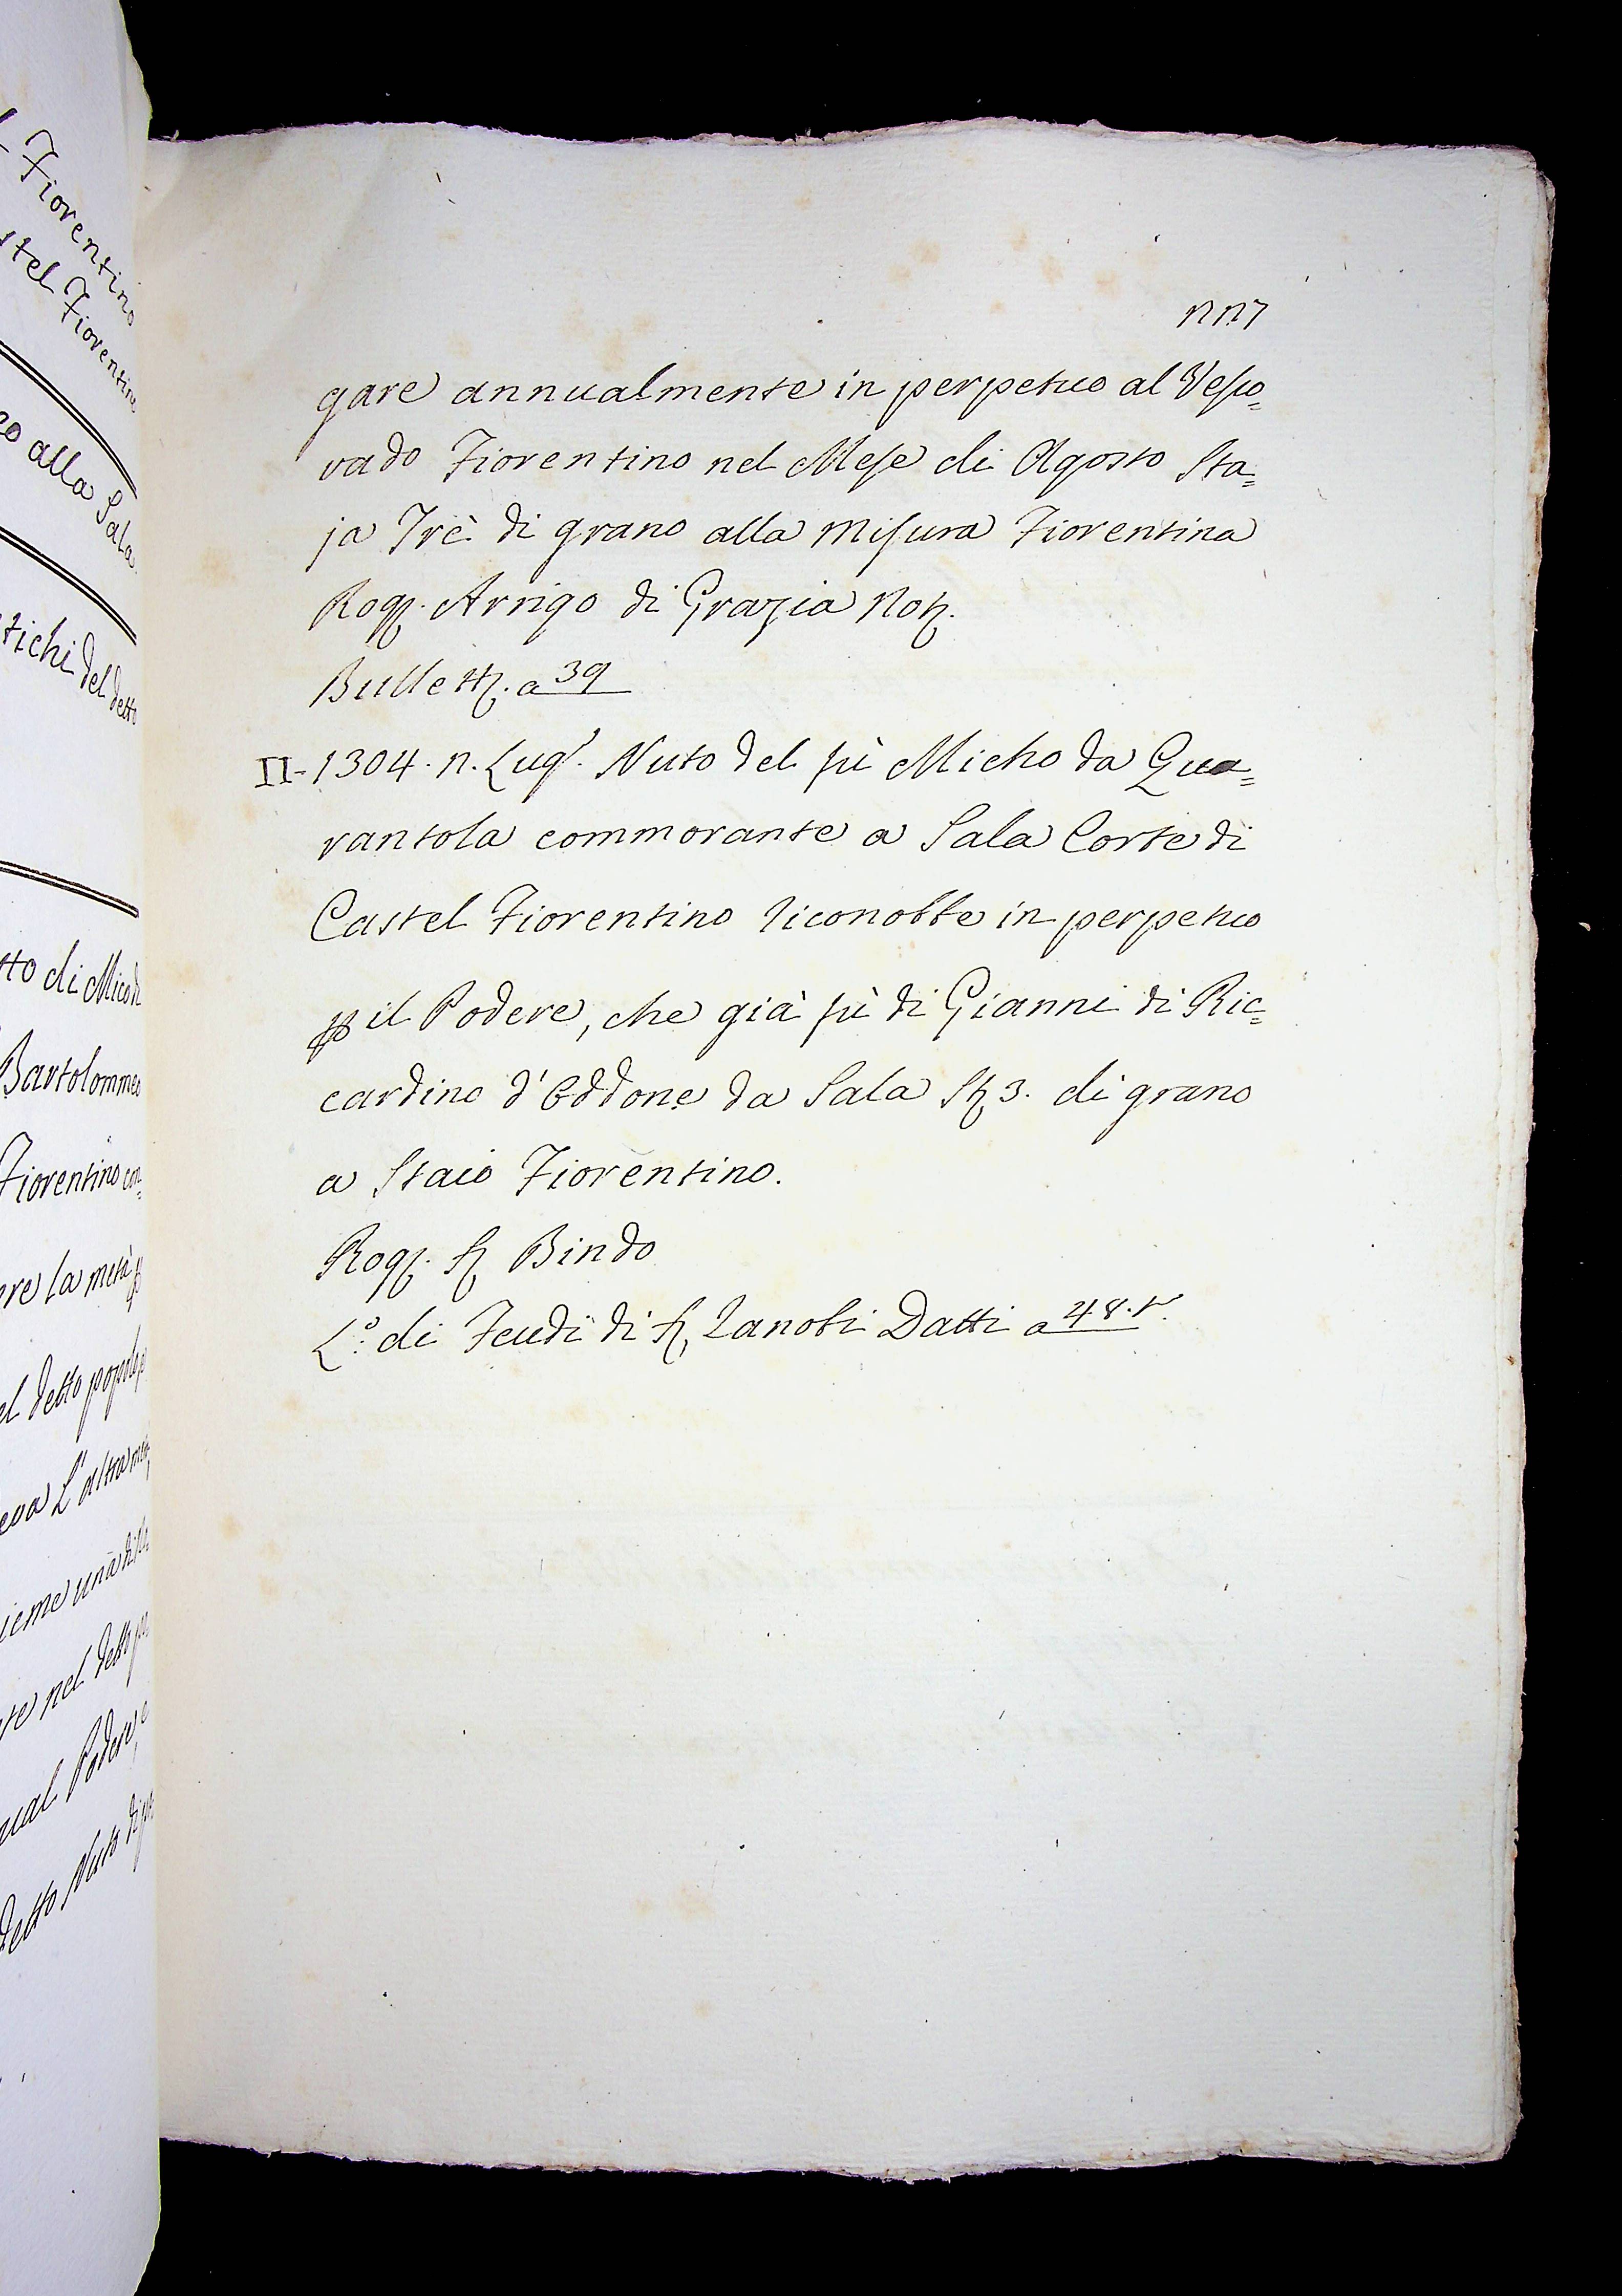 l Fiorentino
stel Fiorentino
eo alla Sala
tichi del detto
tto di Mico d
Bartolommeo
Fiorentino con=
ere la metà
el detto popolo
eva L'altra
ieme una
te nel detto
ual Podere,
detto Nuto di
nn7
gare annualmente in perpetuo al Vesco=
vado Fiorentino nel Mese di Agosto Sta=
ja Trè di grano alla Misura Fiorentina
Rog. Arrigo di Grazia Not.
Bullett. a 39
II-1304. n. Lug. Nuto del fù Micho da Qua=
rantola commorante a Sala Corte di
Castel Fiorentino riconobbe in perpetuo
p il Podere, che già fù di Gianni di Ric=
cardino d'Oddone da Sala St 3. di grano
a Staio Fiorentino.
Rog. S. Bindo
L.º di Feudi di S. Zanobi Datti a 48.t